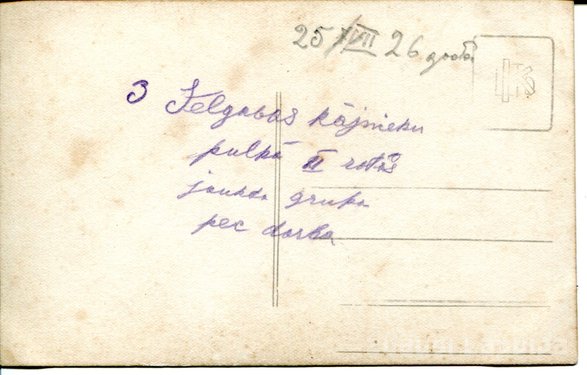 25/VII 26. godā
3 Jelgavas kājnieku
pulkā II rotas
jaukda grupa
pec darba